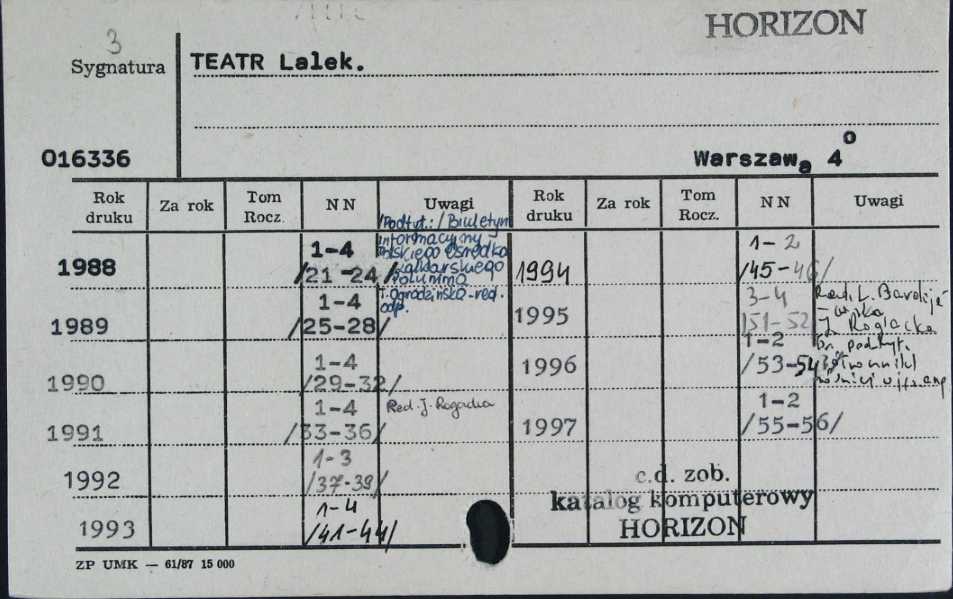 HORIZON
3
Sygnatura
TEATR Lalek.
016336
Warszawa 4°
Rok druku Za rok Tom Rocz. N N Uwagi Rok druku Za rok Tom Rocz. N N Uwagi
/Podtyt.:/ Biuletyn
informacyjny
Polskiego Ośrodka
Lalkarskiego
1988 1-4
/21-24/
T. Ogrodzińska-red.
odp.
1989 1-4
/25-28/
1990 1-4
/29-32/
1991 1-4
/33-36/
Red. J. Rogacka
1992 1-3
/37-39/
1993 1-4
/41-44/
1994 1-2
/45-46/
1995 3-4
/51-52
Red. L.
J. Rogacka
1996 1-2
/53-54
Br. podtyt.
1997 1-2
/55-56/
c.d. zob.
katalog komputerowy
HORIZON
ZP UMK — 61/87 15 000